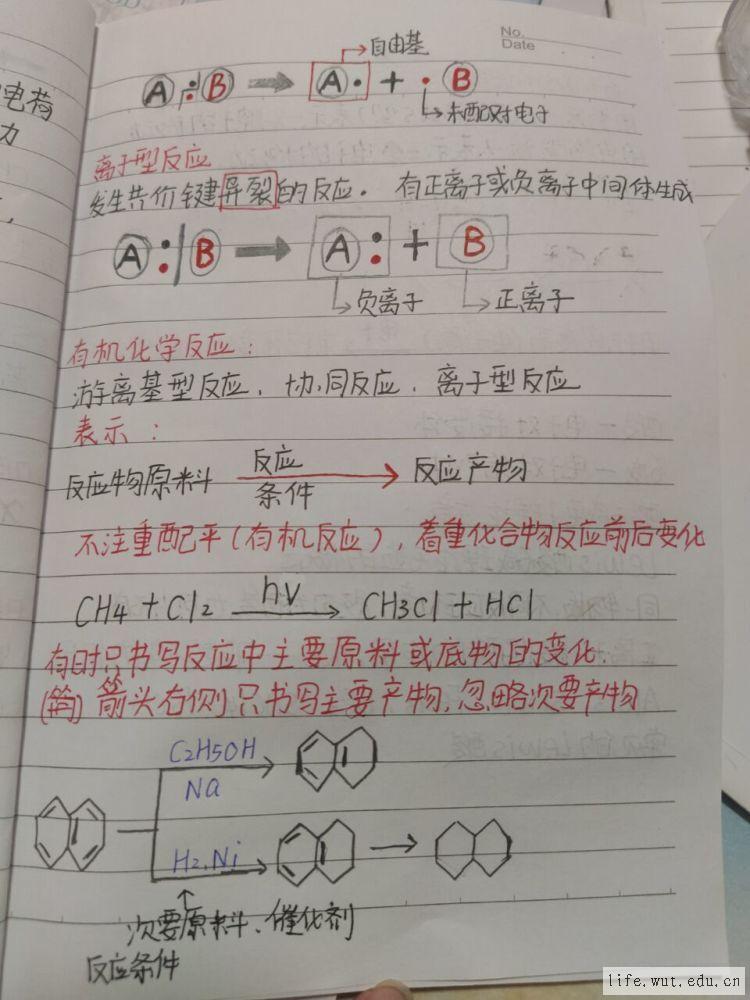 No.
Date
自由基
A · B → A · + · B
未配对电子
电荷
力
离子型反应
发生共价键异裂的反应. 有正离子或负离子中间体生成
A : B → A : + B
负离子 正离子
有机化学反应:
游离基型反应、协同反应、离子型反应
表示:
反应物原料 反应条件 → 反应产物
不注重配平(有机反应), 着重化合物反应前后变化
CH4 + Cl2 hν → CH3Cl + HCl
有时只书写反应中主要原料或底物的变化.
(简) 箭头右侧只书写主要产物, 忽略次要产物
C2H5OH
Na
H2、Ni
次要原料、催化剂
反应条件
life.wut.edu.cn